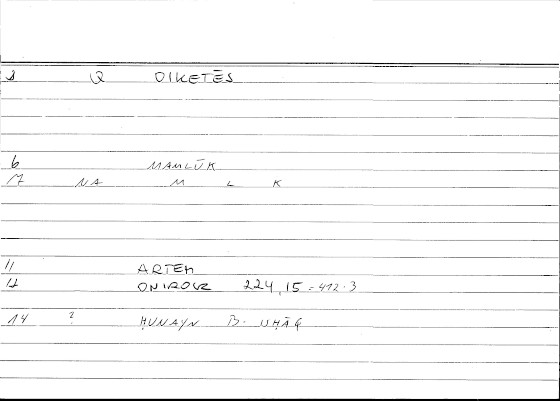 3 Q OIKETĒS
6 MAMLŪK
7 NA M L K
11 ARTEM
12 ONIROCR 224,15 = 412.3
14 ? ḤUNAYN B. ISḤĀQ